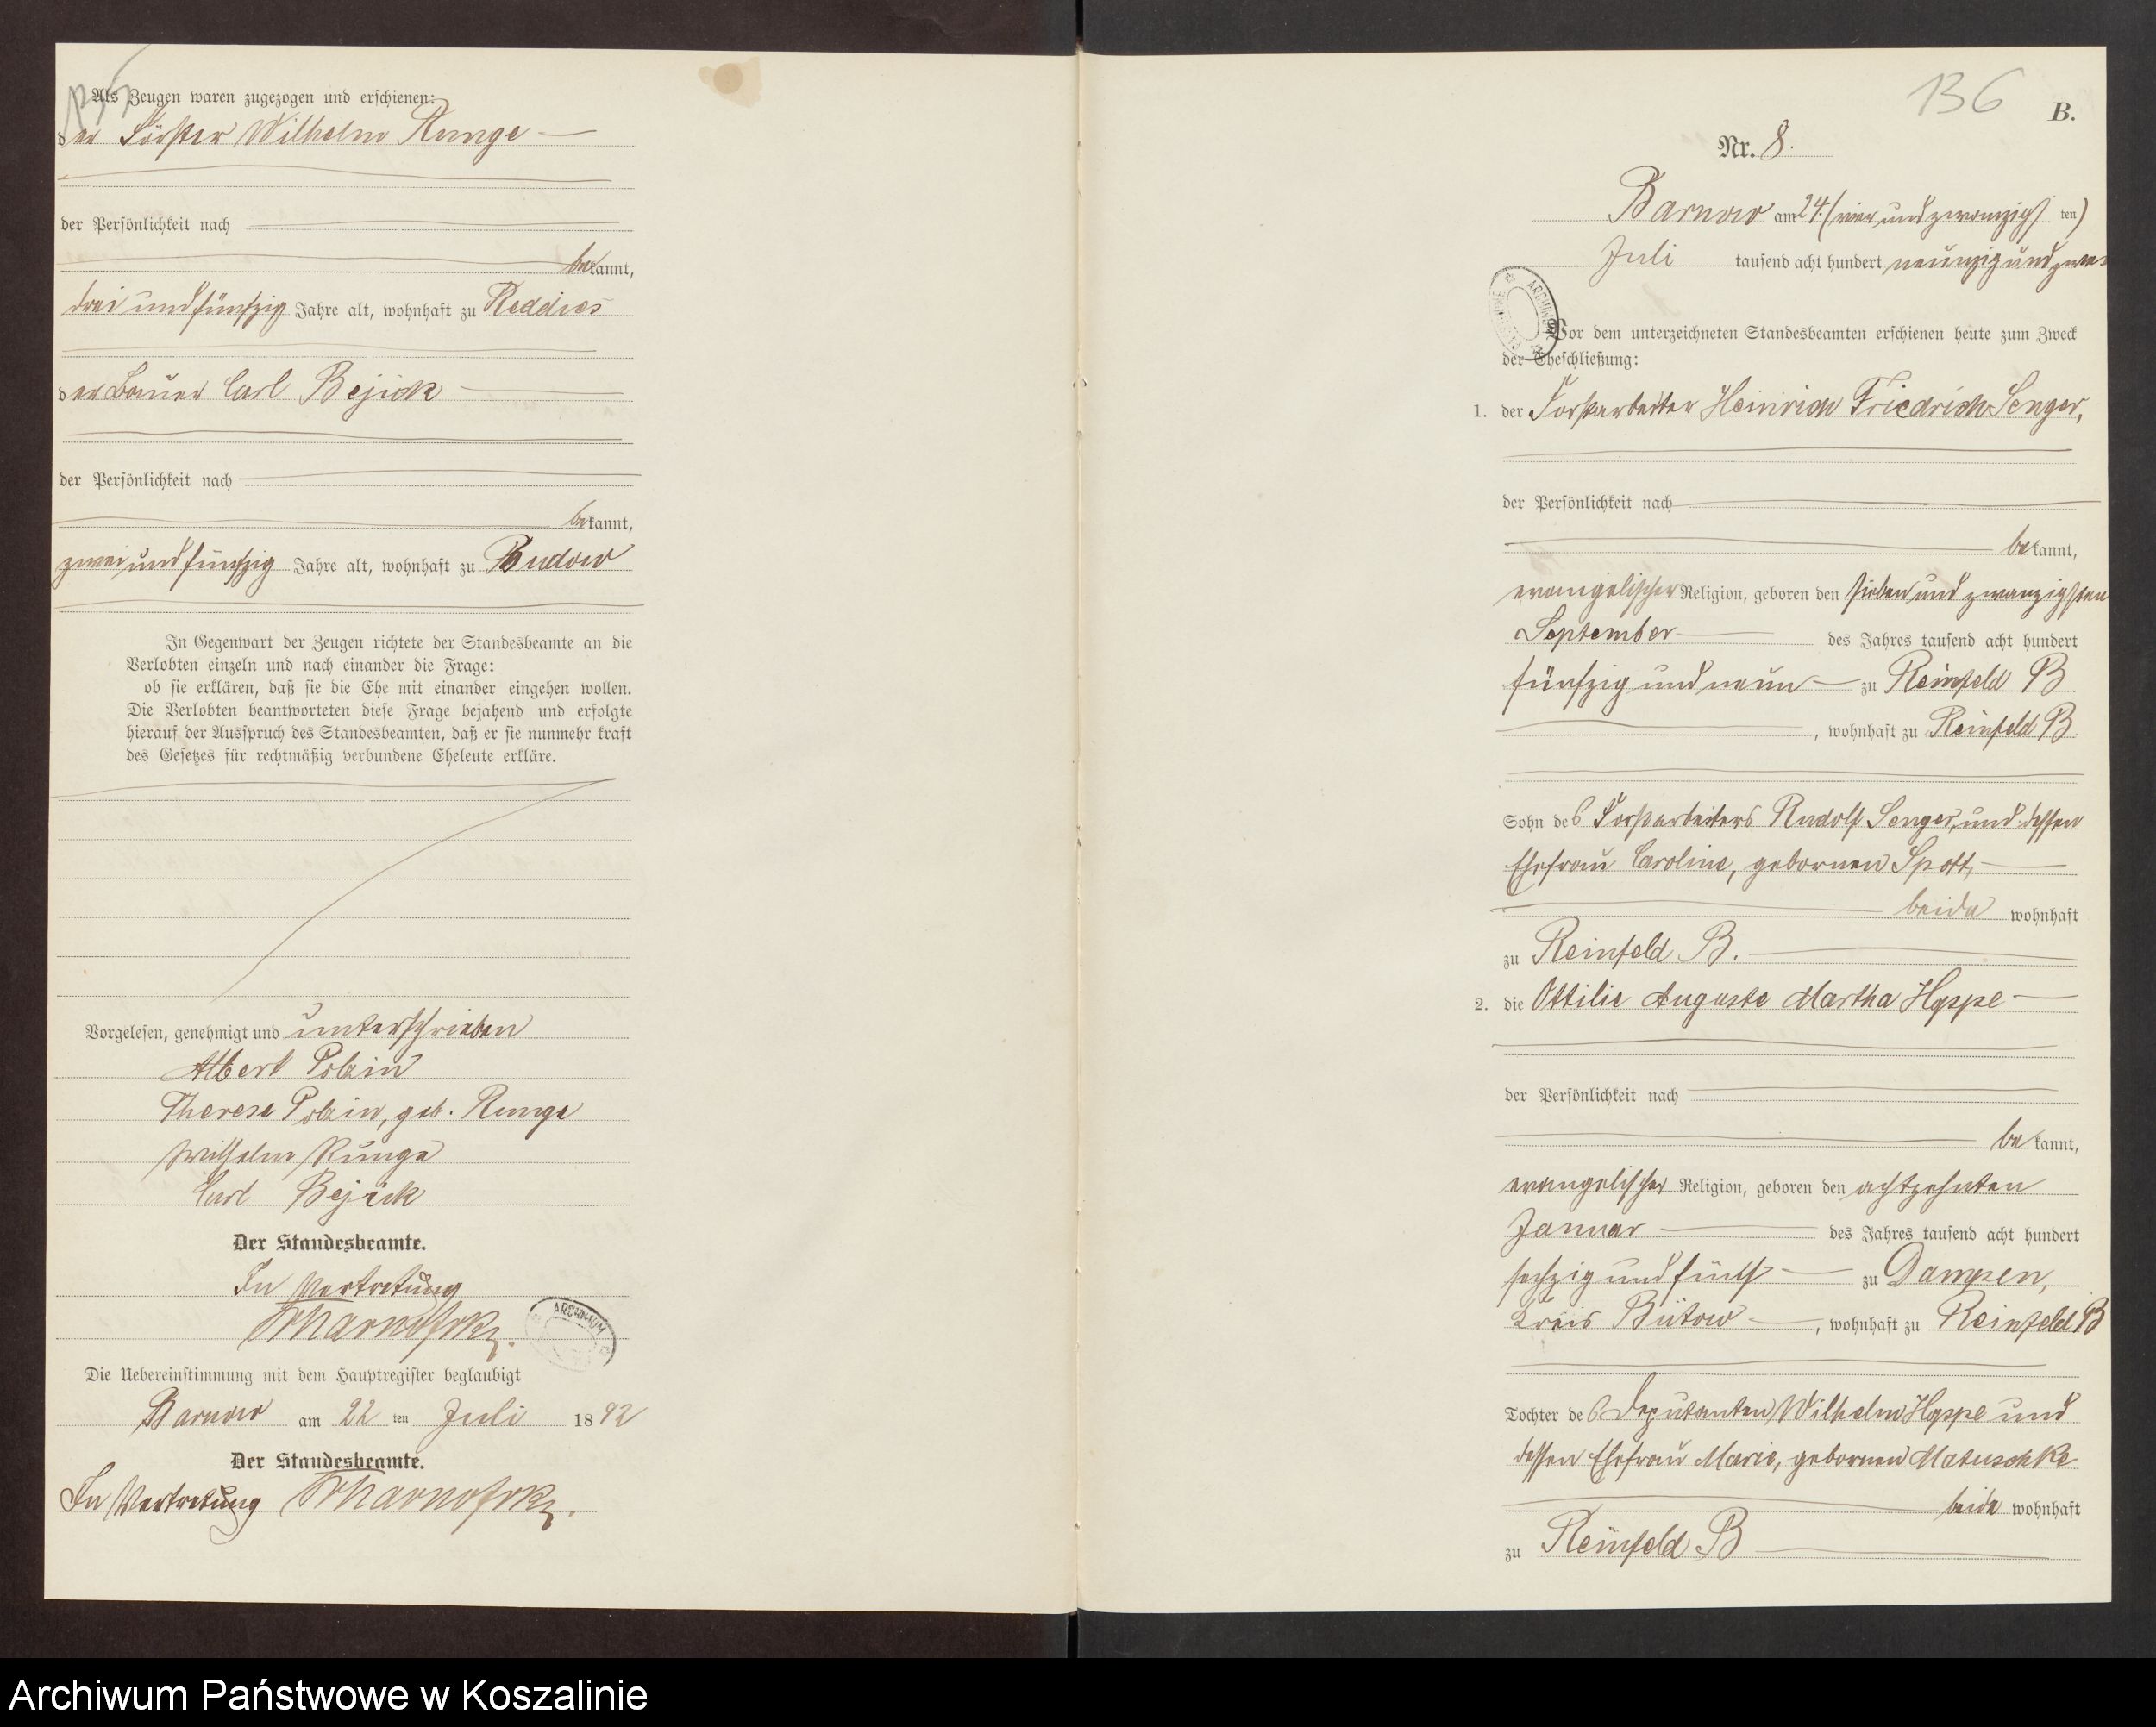 Als Zeugen waren zugezogen und erschienen:
der Förster Wilhelm Runge
der Persönlichkeit nach
bekannt,
drei und fünfzig Jahre alt, wohnhaft zu Reddies
der Bauer Carl Bejick
der Persönlichkeit nach
bekannt,
zwei und fünfzig Jahre alt, wohnhaft zu Budow
In Gegenwart der Zeugen richtete der Standesbeamte an die
Verlobten einzeln und nach einander die Frage:
ob sie erklären, daß sie die Ehe mit einander eingehen wollen.
Die Verlobten beantworteten diese Frage bejahend und erfolgte
hierauf der Ausspruch des Standesbeamten, daß er sie nunmehr kraft
des Gesetzes für rechtmäßig verbundene Eheleute erkläre.
Vorgelesen, genehmigt und unterschrieben
Albert Polzin
Therese Polzin, geb. Runge
Wilhelm Runge
Carl Bejick
Der Standesbeamte.
In Vertretung
ARCHIWUM
Die Uebereinstimmung mit dem Hauptregister beglaubigt
Barnow am 22 ten Juli 1892
Der Standesbeamte.
In Vertretung
136
B.
Nr. 8.
Barnow am 24. (vier und zwanzigsten)
Juli tausend acht hundert neunzig und zwei
ARCHIWUM
Vor dem unterzeichneten Standesbeamten erschienen heute zum Zweck
der Eheschließung:
1. der Forstarbeiter Heinrich Friedrich Senger,
der Persönlichkeit nach
bekannt,
evangelischer Religion, geboren den sieben und zwanzigsten
September des Jahres tausend acht hundert
fünfzig und neun zu Reinfeld B
, wohnhaft zu Reinfeld B
Sohn des Forstarbeiters Rudolf Senger, und dessen
Ehefrau Caroline, gebornen Spott,
beide wohnhaft
zu Reinfeld B.
2. die Ottilie Auguste Martha Hoppe
der Persönlichkeit nach
bekannt,
evangelischer Religion, geboren den achtzehnten
Januar des Jahres tausend acht hundert
sechzig und fünf zu Dampen,
Kreis Bütow, wohnhaft zu Reinfeld B
Tochter des Deputanten Wilhelm Hoppe und
dessen Ehefrau Marie, gebornen Matuschke
beide wohnhaft
zu Reinfeld B
Archiwum Państwowe w Koszalinie